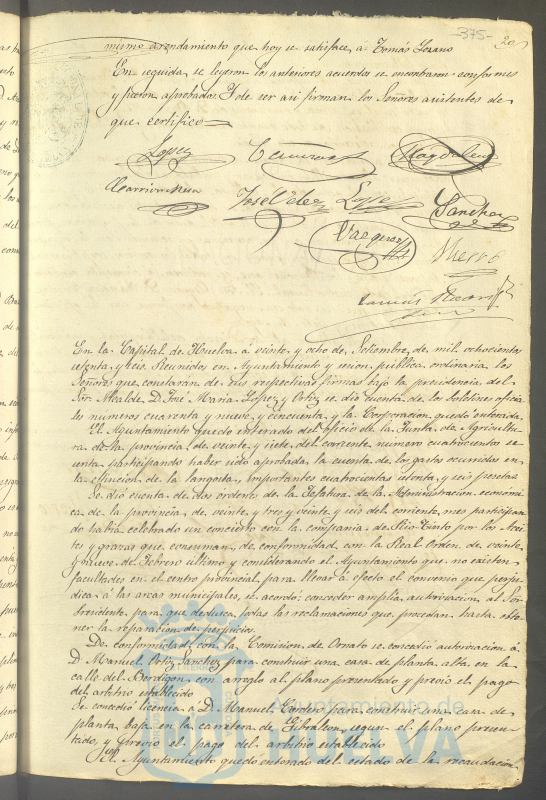 -375-
20
mismo arrendamiento que hoy se satisface á Tomás Lozano
En seguida se leyeron los anteriores acuerdos se encontraron conformes
y fueron aprobados. Y de ser asi firman los Señores asistentes de
que certifico
Lopez
Magdalena
José Velez Lopez
Sanchez
Vazquez
En la Capital de Huelva á veinte y ocho de Setiembre de mil ochocientos
setenta y seis. Reunidos en Ayuntamiento y sesion publica ordinaria los
Señores que constarán de sus respectivas firmas bajo la presidencia del
Sor. Alcalde D. José Maria Lopez y Ortiz se dió cuenta de los boletines oficia
les numeros cuarenta y nueve y cincuenta, y la Corporacion quedó enterada.
El Ayuntamiento quedó enterado del oficio de la Junta de Agricultu
ra de la provincia de veinte y siete del corriente numero cuatrocientos se
senta participando haber sido aprobada la cuenta de los gastos ocurridos en
la estincion de la langosta, importantes cuatrocientas setenta y seis pesetas.
Se dió cuenta de dos ordenes de la Jefatura de la Administracion económi
ca de la provincia de veinte y tres y veinte y seis del corriente mes participan
do habia celebrado un concierto con la compañia de Rio-Tinto por los Acei
tes y grasas que consuman, de conformidad con la Real Orden de veinte
y nueve de Febrero ultimo y considerando el Ayuntamiento que no existen
facultades en el centro provincial para llevar á efecto el convenio que perju
dica á las arcas municipales, se acordó: conceder amplia autorizacion al Sor.
Presidente para que deduzca todas las reclamaciones que procedan hasta obte
ner la reparacion de perjuicios.
De conformidad con la Comision de Ornato se concedió autorizacion á
D. Manuel Ortiz Sanchez para construir una casa de planta alta en la
calle del Berdigon con arreglo al plano presentado y previo el pago
del arbitrio establecido
Se concedió licencia á D. Manuel Cordero para construir una casa de
planta baja en la carretera de Gibraleon, segun el plano presen
tado, y previo el pago del arbitrio establecido
El Ayuntamiento quedó enterado del estado de la recaudacion
Ayuntamiento de
HUELVA